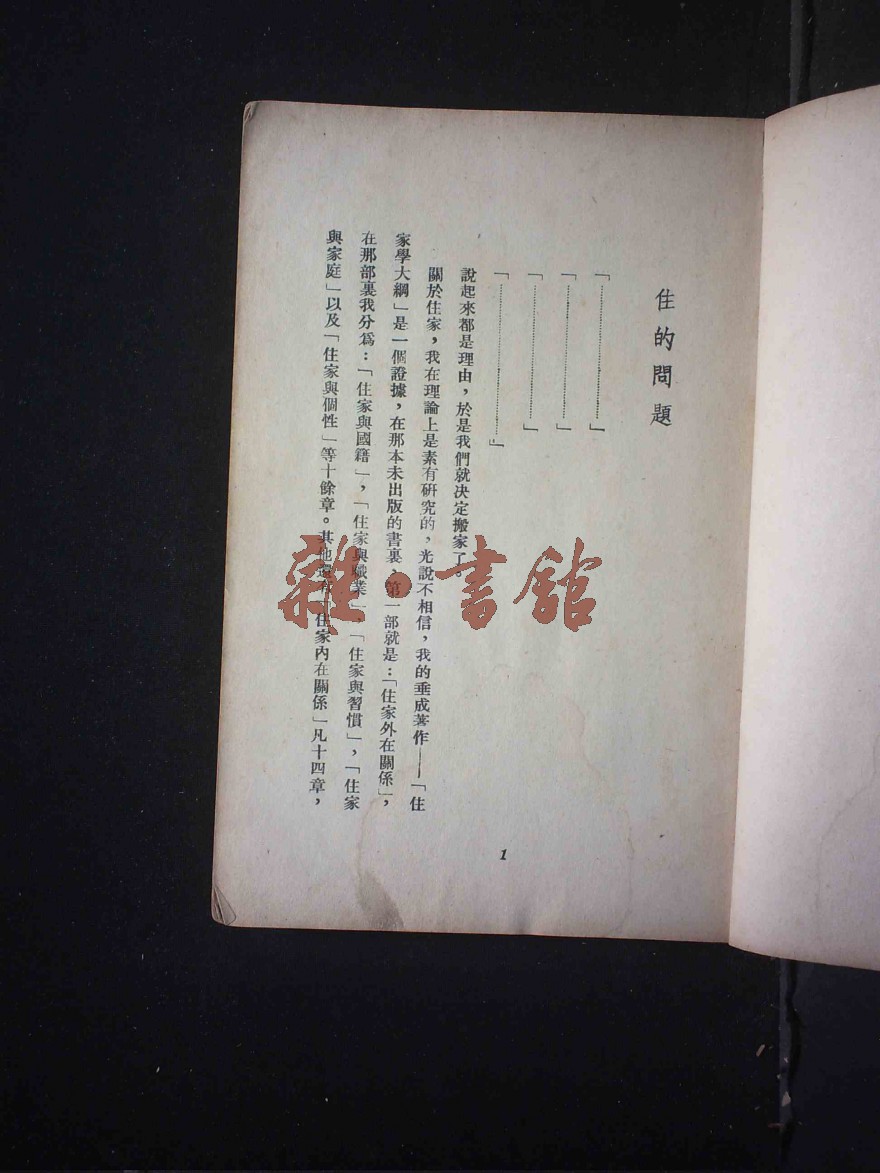 住的問題
「……………………」
「……………………」
「……………………」
「…………………………」
說起來都是理由，於是我們就決定搬家了。
關於住家，我在理論上是素有研究的，光說不相信，我的垂成著作——「住
家學大綱」是一個證據，在那本未出版的書裏，第一部就是：「住家外在關係」，
在那部裏我分爲：「住家與國籍」，「住家與職業」，「住家與習慣」，「住家
與家庭」以及「住家與個性」等十餘章。其他還有「住家內在關係」凡十四章，
1
雜·書館